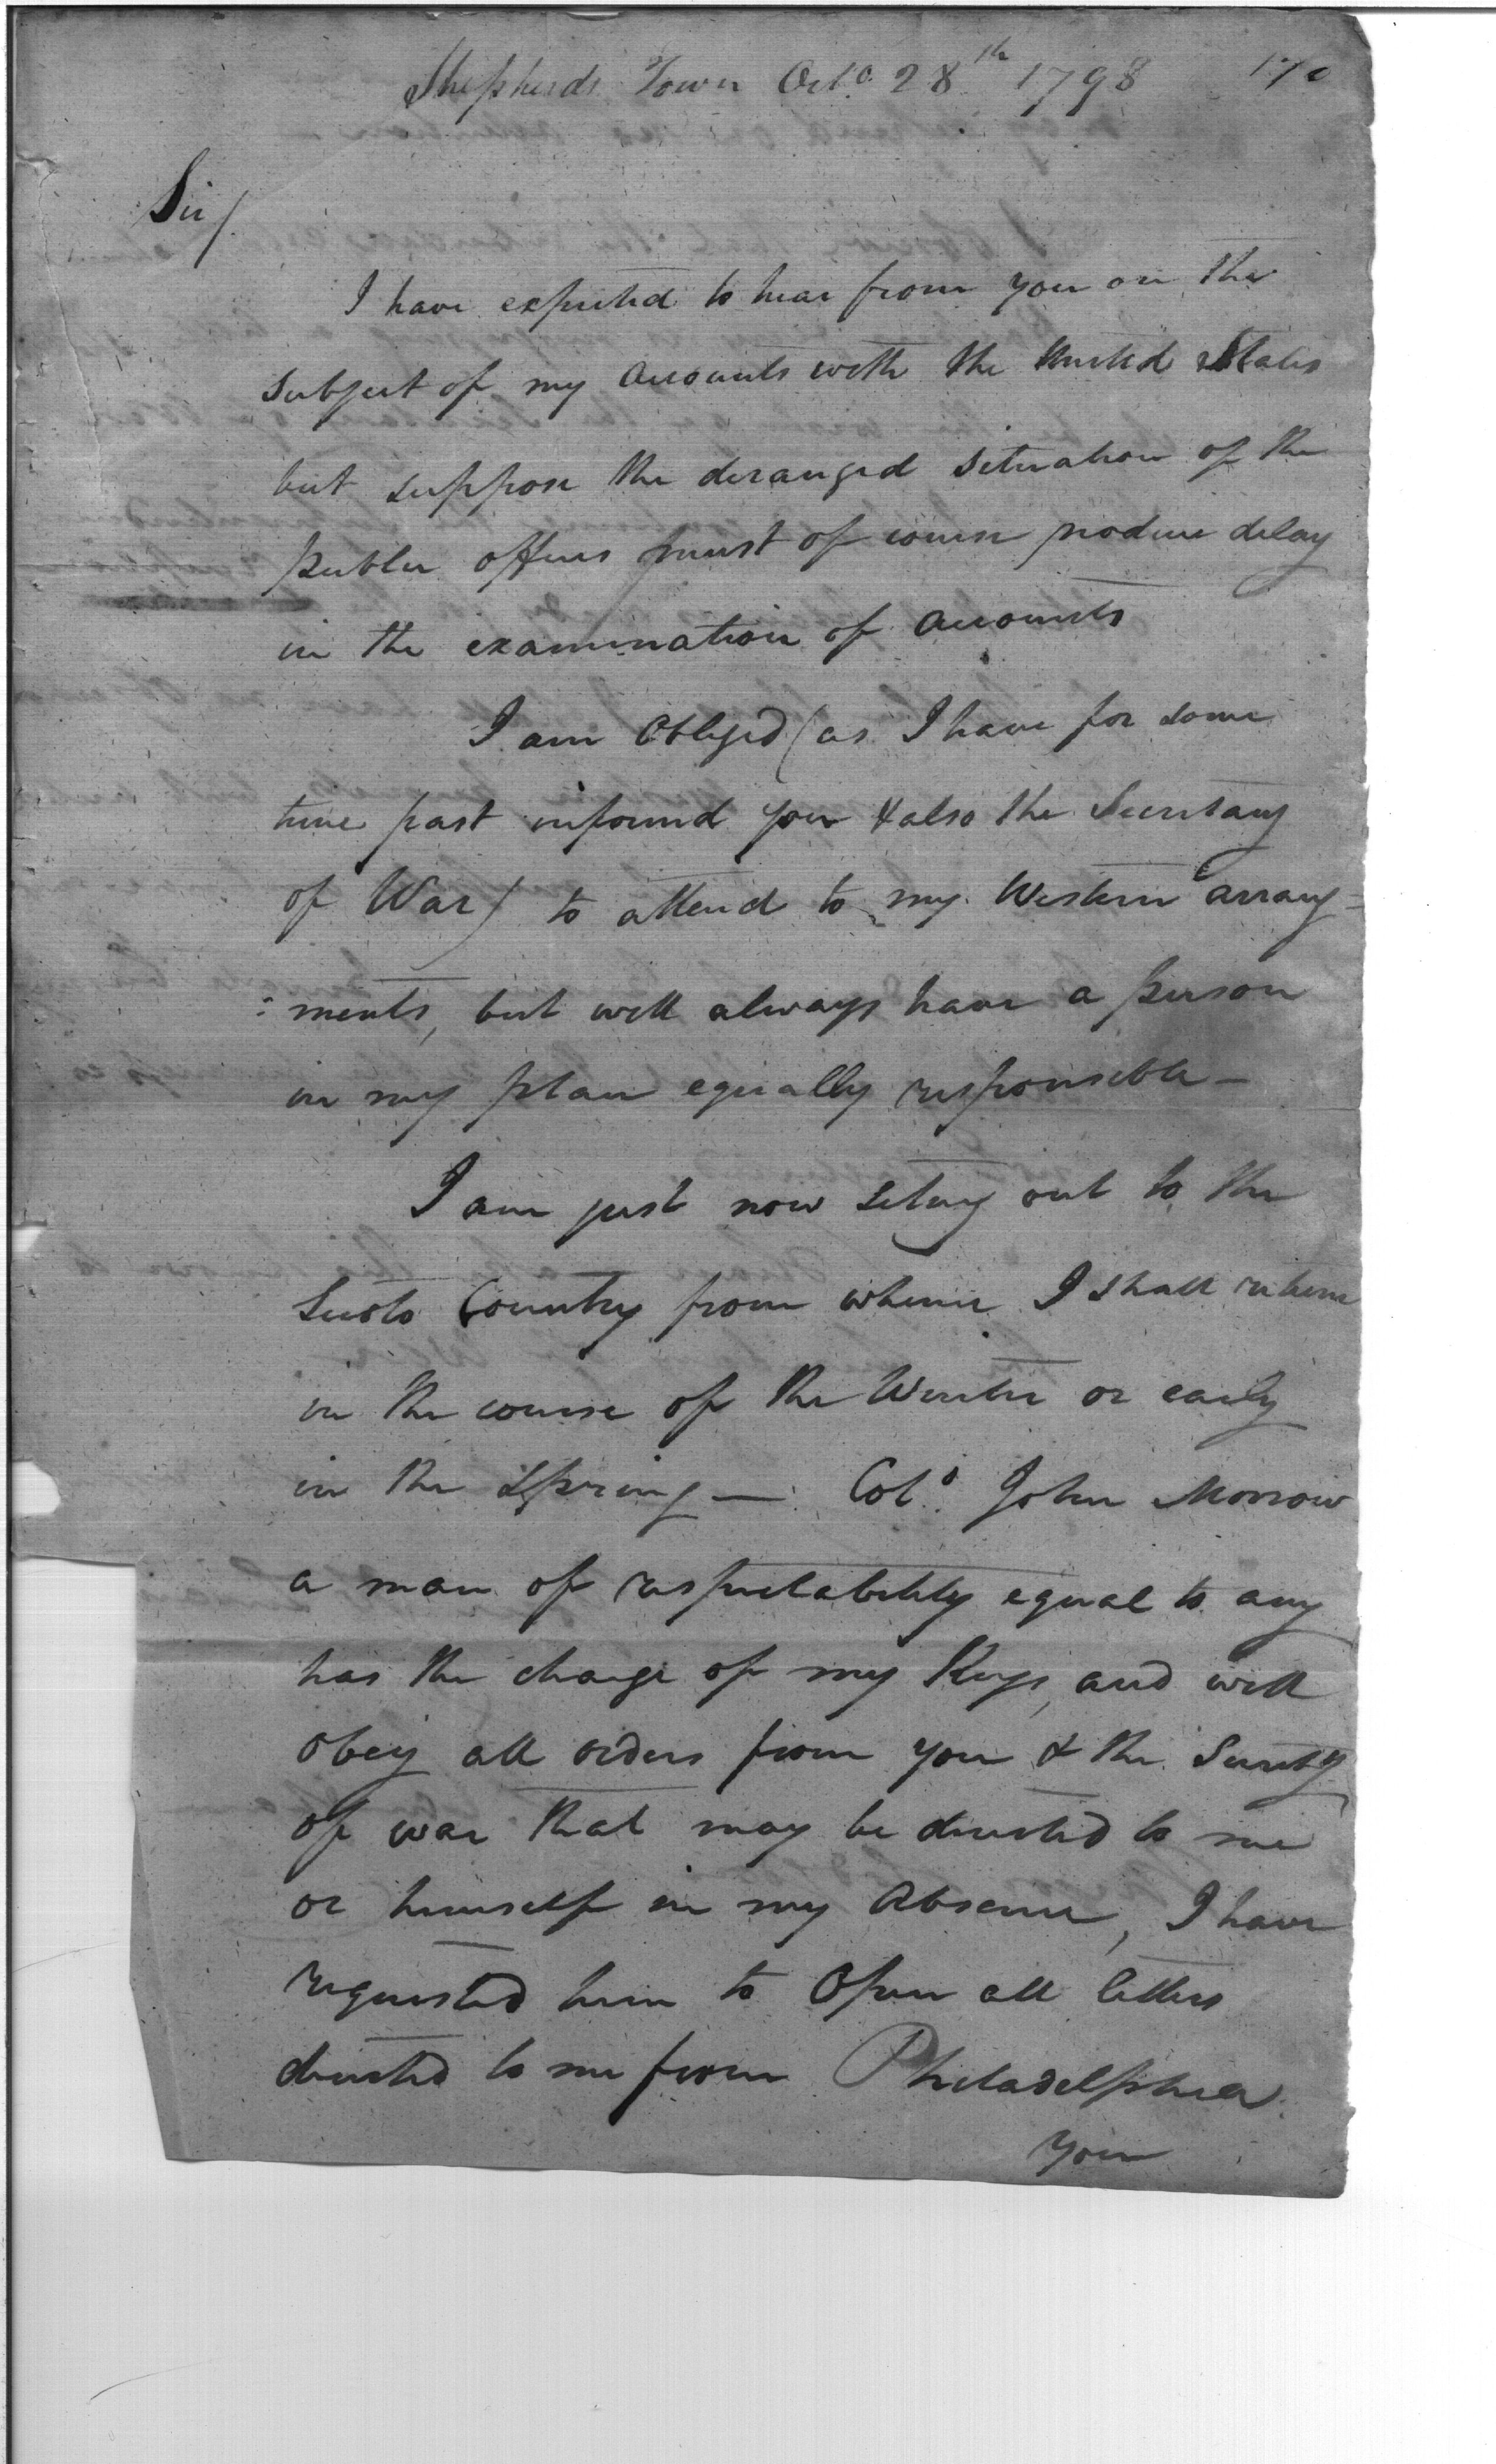 Shepherds Town Octo. 28th 1798
Sir/.
I have expected to hear from you on the
subject of my accounts with the United States
but suppose the deranged situation of the
public offices must of course produce delay
in the examination of accounts
I am Obliged (as I have for some
time past informd you & also the Secretary
of War) to attend to my Western arrang=
=ments, but will always have a person
in my place equally responsible—
I am just now seting out to the
Scioto Country from whence I shall return
in the course of the Winter or early
in the Spring — Colo. John Morrow
a man of respectability equal to any
has the charge of my Keys, and will
obey all orders from you & the Secrety
of war that may be directed to me
or himself in my Absence, I have
requested him to Open all letters
directed to me from Philadelphia.
Your